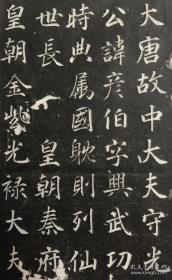 大唐故中大夫守光
公諱彦伯字興武功
時典属國眈則列仙
世長　皇朝秦府
皇朝金紫光禄大夫